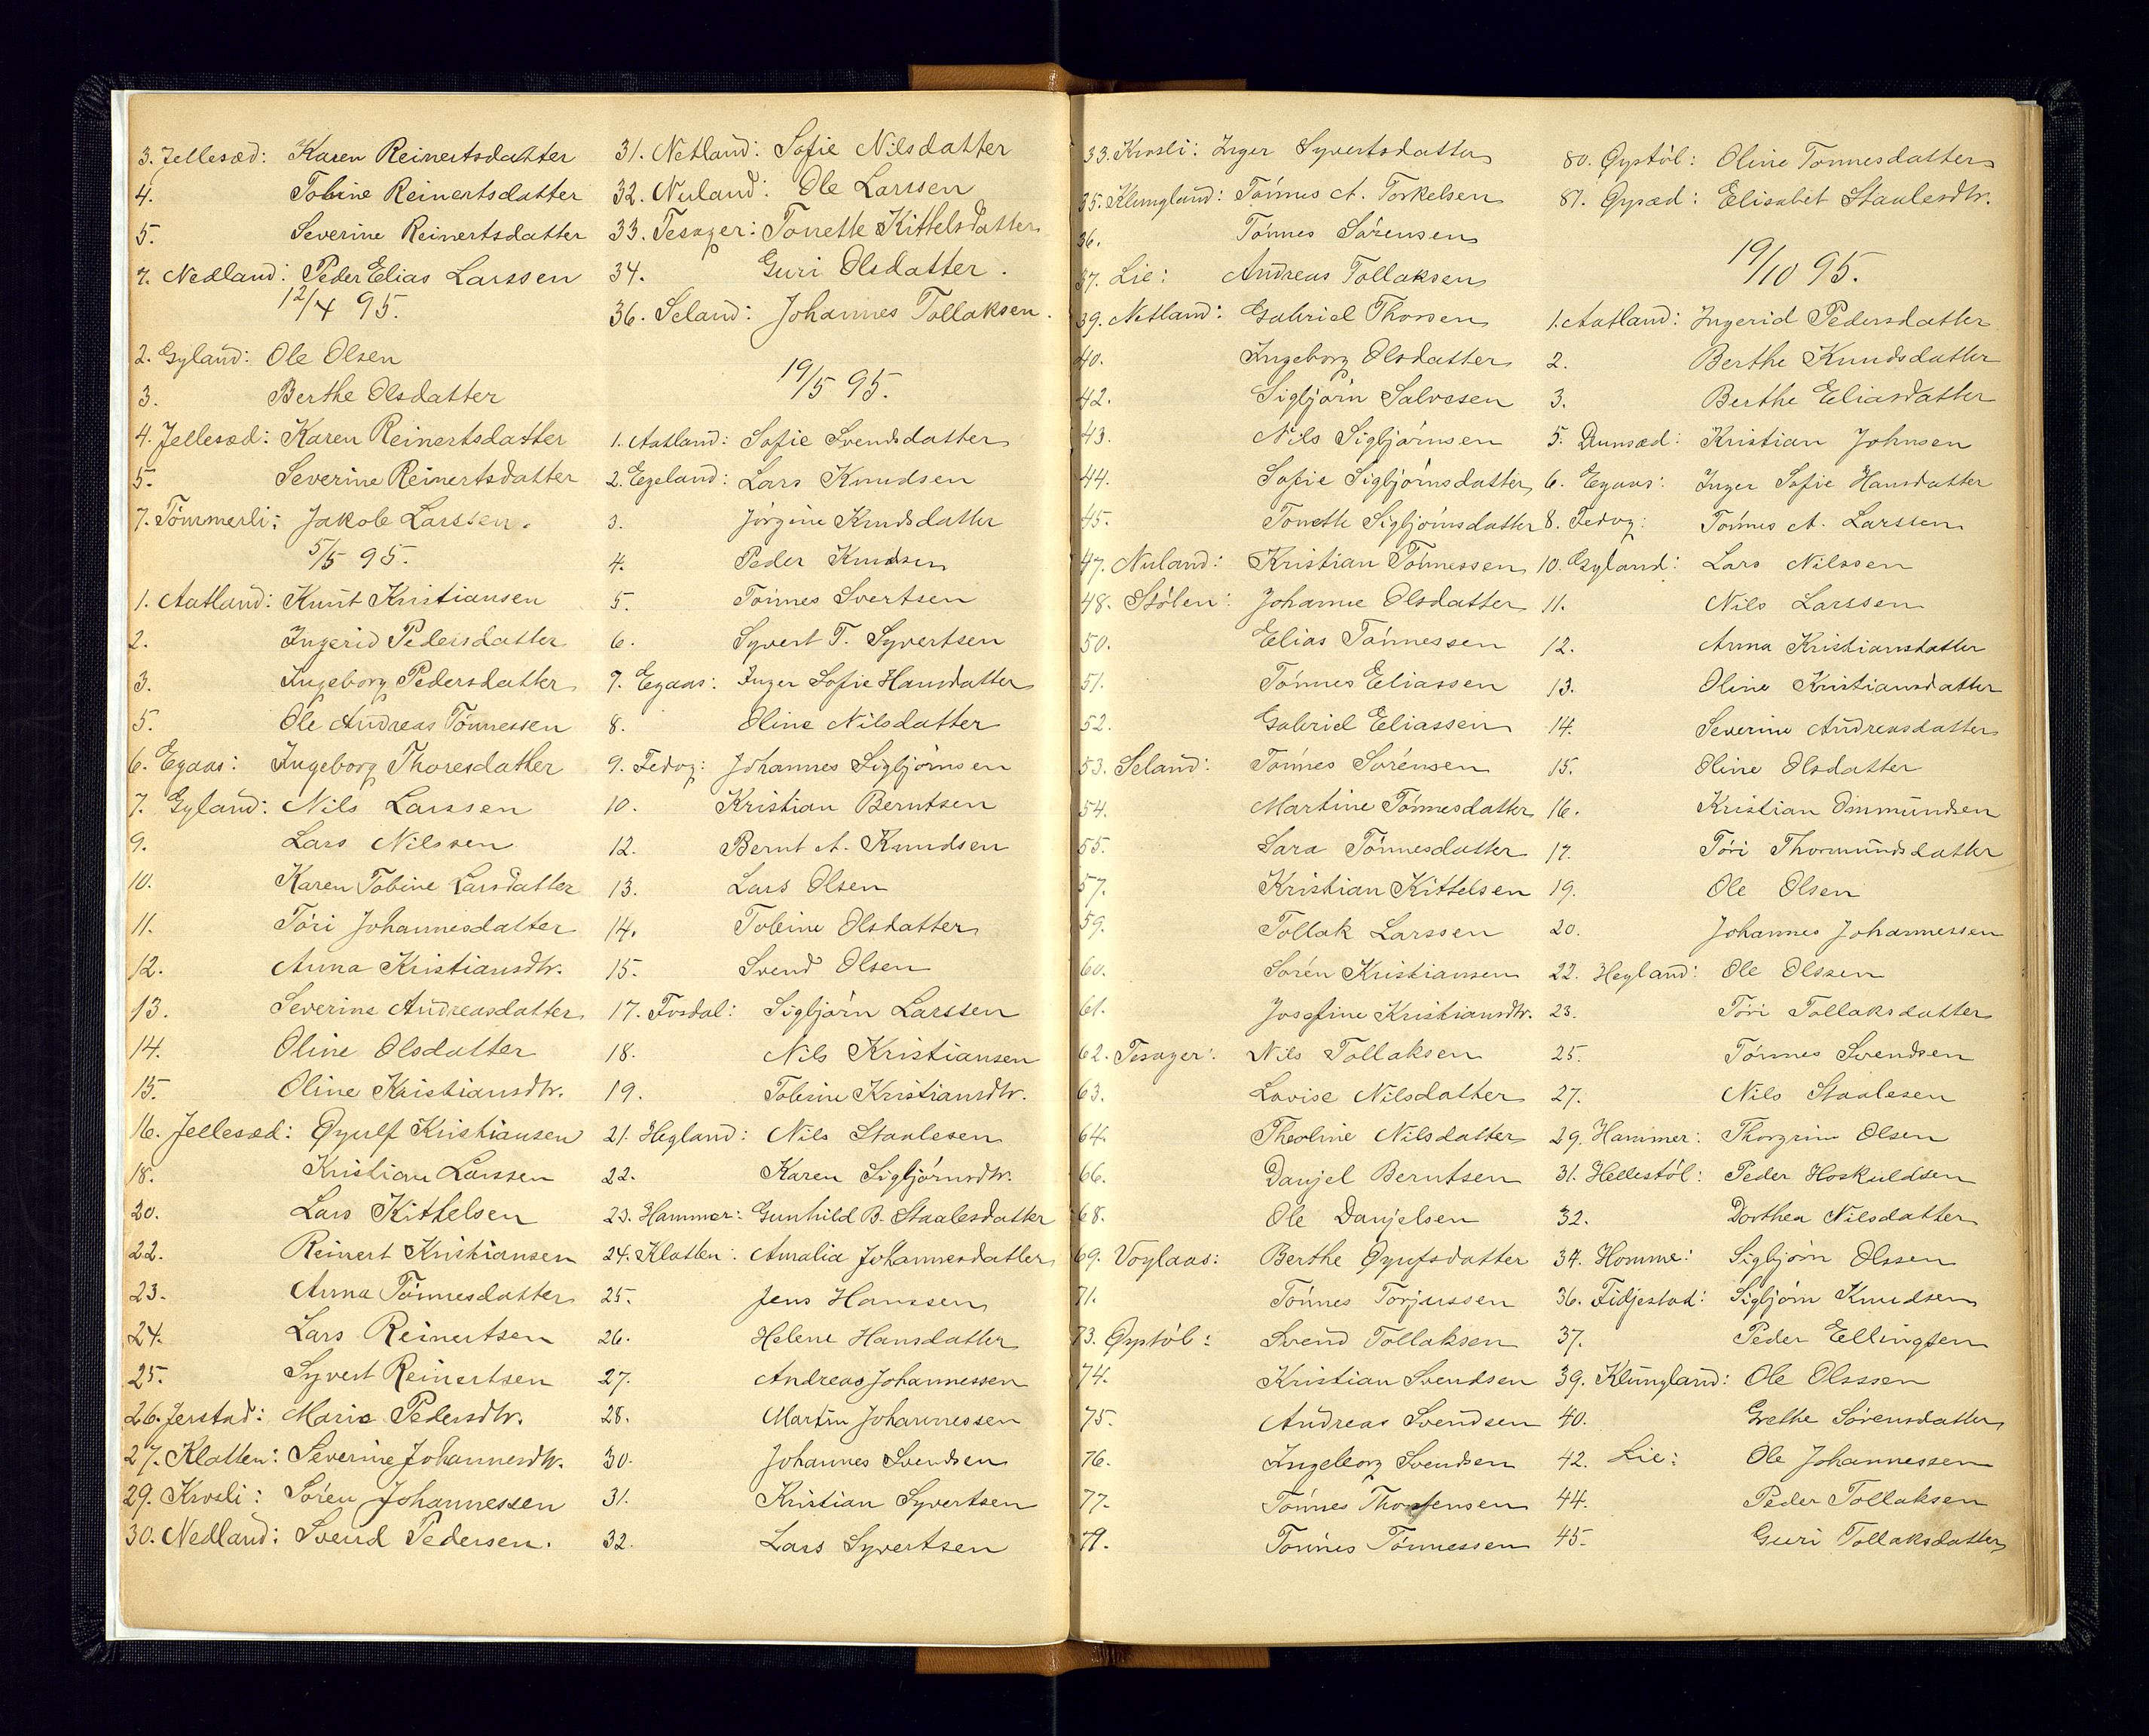 3. Jellesæd: Karen Reinertsdatter
4. Tobine Reinertsdatter
5. Severine Reinertsdatter
7. Nedland: Peder Elias Larssen
12/4 95.
2. Gyland: Ole Olsen
3. Berthe Olsdatter
4. Jellesæd: Karen Reinertsdatter
5. Severine Reinertsdatter
7. Tömmerli: Jakob Larssen.
5/5 95.
1. Aatland: Knut Kristiansen
2. Ingerid Pedersdatter
3. Ingeborg Pedersdatter
5. Ole Andreas Tönnessen
6. Egaas: Ingeborg Thoresdatter
7. Gyland: Nils Larssen
9. Lars Nilssen
10. Karen Tobine Larsdatter
11. Töri Johannesdatter
12. Anna Kristiansdtr.
13. Severine Andreasdatter
14. Oline Olsdatter
15. Oline Kristiansdtr.
16. Jellesæd: Øyulf Kristiansen
18. Kristian Larssen
20. Lars Kittelsen
22. Reinert Kristiansen
23. Anna Tönnesdatter
24. Lars Reinertsen
25. Syvert Reinertsen
26. Jerstad: Marie Pedersdtr.
27. Klatten: Severine Johannesdtr.
29. Krosli: Sören Johannessen
30. Nedland: Svend Pedersen.
31. Netland: Sofie Nilsdatter
32. Nuland: Ole Larssen
33. Tesager: Tonette Kittelsdatter
34. Guri Olsdatter.
36. Seland: Johannes Tollaksen.
19/5 95.
1. Aatland: Sofie Svendsdatter
2. Egeland: Lars Knudsen
3. Jörgine Knudsdatter
4. Peder Knudsen
5. Tönnes Svertsen
6. Syvert T. Syvertsen
7. Egaas: Inger Sofie Hansdatter
8. Oline Nilsdatter
9. Fedog: Johannes Sigbjörnsen
10. Kristian Berntsen
12. Bernt A. Knudsen
13. Lars Olsen
14. Tobine Olsdatter
15. Svend Olsen
17. Fosdal: Sigbjörn Larssen
18. Nils Kristiansen
19. Tobine Kristiansdtr.
21. Hegland: Nils Staalesen
22. Karen Sigbjörnsdtr.
23. Hammer: Gunhild B. Staalesdatter
24. Klatten: Amalia Johannesdatter
25. Jens Hanssen
26. Helene Hansdatter
27. Andreas Johannessen
28. Martin Johannessen
30. Johannes Svendsen
31. Kristian Syvertsen
32. Lars Syvertsen
33. Krosli: Inger Syvertsdatter
35. Klungland: Tönnes A. Torkelsen
36. Tönnes Sörensen
37. Lie: Andreas Tollaksen
39. Netland: Gabriel Thorsen
40. Ingeborg Olsdatter
42. Sigbjörn Salvesen
43. Nils Sigbjörnsen
44. Sofie Sigbjörnsdatter
45. Tonette Sigbjörnsdatter
47. Nuland: Kristian Tönnessen
48. Stölen: Johanne Olsdatter
50. Elias Tönnessen
51. Tönnes Eliassen
52. Gabriel Eliassen
53. Seland: Tönnes Sörensen
54. Martine Tönnesdatter
55. Sara Tönnesdatter
57. Kristian Kittelsen
59. Tollak Larssen
60. Sören Kristiansen
61. Josefine Kristiansdtr.
62. Tesager: Nils Tollaksen
63. Lovise Nilsdatter
64. Theoline Nilsdatter
66. Danjel Berntsen
68. Ole Danjelsen
69. Voglaas: Berthe Øyufsdatter
71. Tönnes Torjussen
73. Øystöl: Svend Tollaksen
74. Kristian Svendsen
75. Andreas Svendsen
76. Ingeborg Svendsen
77. Tönnes Thorsensen
79. Tönnes Tönnessen
80. Øystöl: Oline Tönnesdatter
81. Øysæd: Elisabet Staalesdtr.
19/10 95.
1. Aatland: Ingerid Pedersdatter
2. Berthe Knudsdatter
3. Berthe Eliasdatter
5. Dunsæd: Kristian Johnsen
6. Egaas: Inger Sofie Hansdatter
8. Fedog: Tönnes A. Larssen
10. Gyland: Lars Nilssen
11. Nils Larssen
12. Anna Kristiansdatter
13. Oline Kristiansdatter
14. Severine Andreasdatter
15. Oline Olsdatter
16. Kristian Ommundsen
17. Töri Thormundsdatter
19. Ole Olsen
20. Johannes Johannessen
22. Hegland: Ole Olssen
23. Töri Tollaksdatter
25. Tönnes Svendsen
27. Nils Staalesen
29. Hammer: Thorgrim Olsen
31. Hellestöl: Peder Hoskuldsen
32. Dorthea Nilsdatter
34. Homme: Sigbjörn Olssen
36. Fidjestad: Sigbjörn Knudsen
37. Peder Ellingsen
39. Klungland: Ole Olsssen
40. Grethe Sörensdatter
42. Lie: Ole Johannessen
44. Peder Tollaksen
45. Guri Tollaksdatter